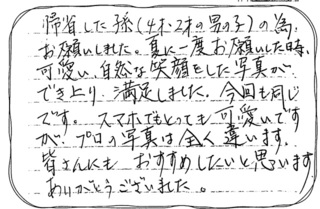 帰省した孫(4才・2才の男の子)の為、
お願いしました。夏に一度お願いした時、
可愛い、自然な笑顔をした写真が
でき上り、満足しました。今回も同じ
です。スマホでもとっても可愛いです
が、プロの写真は全く違います。
皆さんにも おすすめしたいと思います
ありがとうございました。